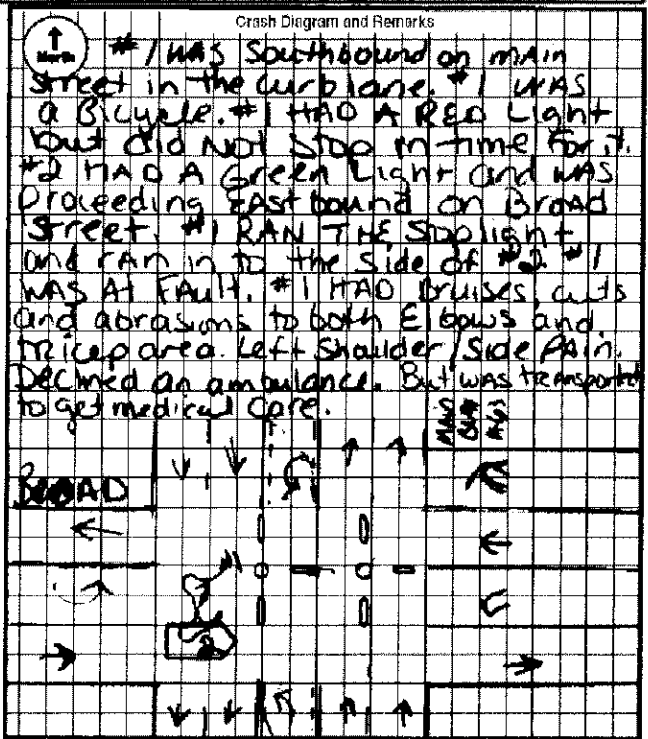 Crash Diagram and Remarks
North
#1 WAS Southbound on mAin
Street in the curb lane. #1 WAS
a Bicycle. #1 HAD A RED Light
but did NOT stop in time for it.
#2 HAD A Green Light and WAS
Proceeding EAstbound on BroAd
Street. #1 RAN THE Stoplight
and rAn in to the side of #2. #1
WAS At FAult. #1 HAD Bruises, cuts
and abrasions to both Elbows and
tricep area. Left Shoulder/Side PAin.
Declined an ambulance. But was transported
to get medical care.
BROAD
#1
2